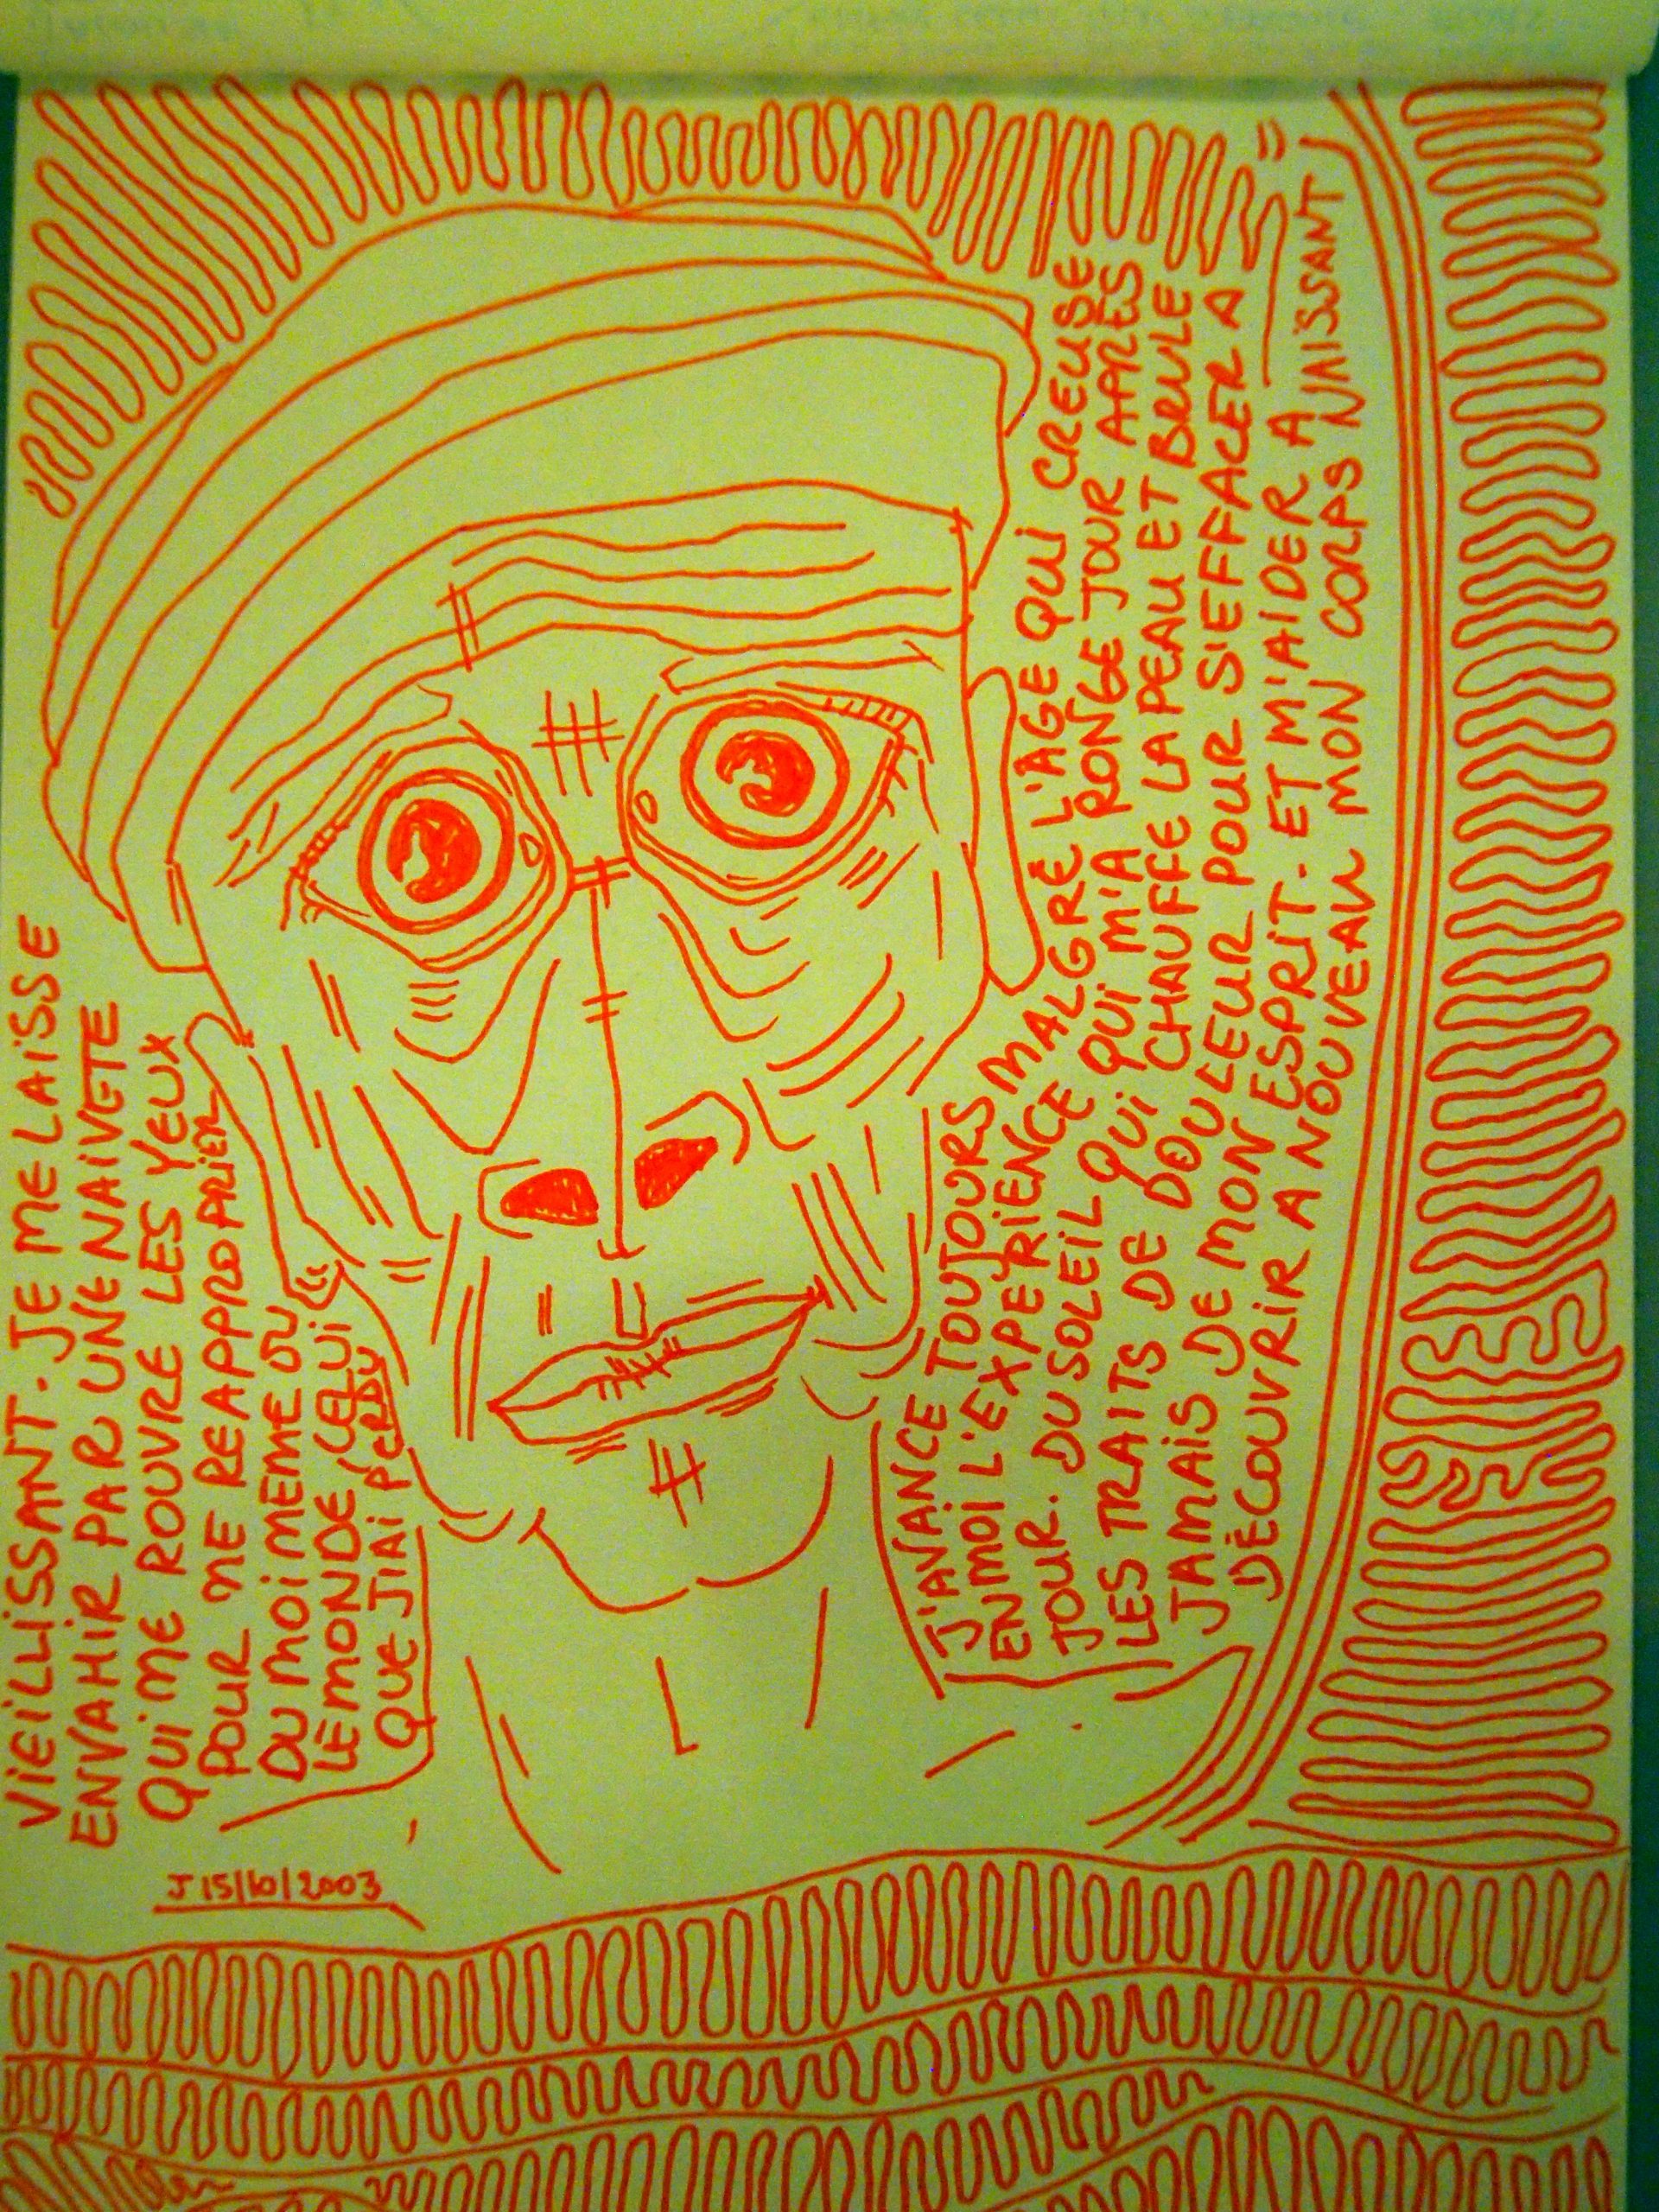 J'AVANCE TOUJOURS MALGRE L'AGE QUI CREUSE
EN MOI L'EXPERIENCE QUI M'A RONGE JOUR APRES
JOUR. DU SOLEIL QUI CHAUFFE LA PEAU ET BRULE
LES TRAITS DE DOULEUR POUR S'EFFACER A
JAMAIS DE MON ESPRIT. ET M'AIDER A
DÉCOUVRIR A NOUVEAU MON CORPS NAISSANT
VIEILLISSANT. JE ME LAISSE
ENVAHIR PAR UNE NAIVETE
QUI ME ROUVRE LES YEUX
POUR ME REAPPROPRIER
DU MOI MEME OU
LE MONDE CELUI
QUE J'AI PERDU
J 15/10/2003